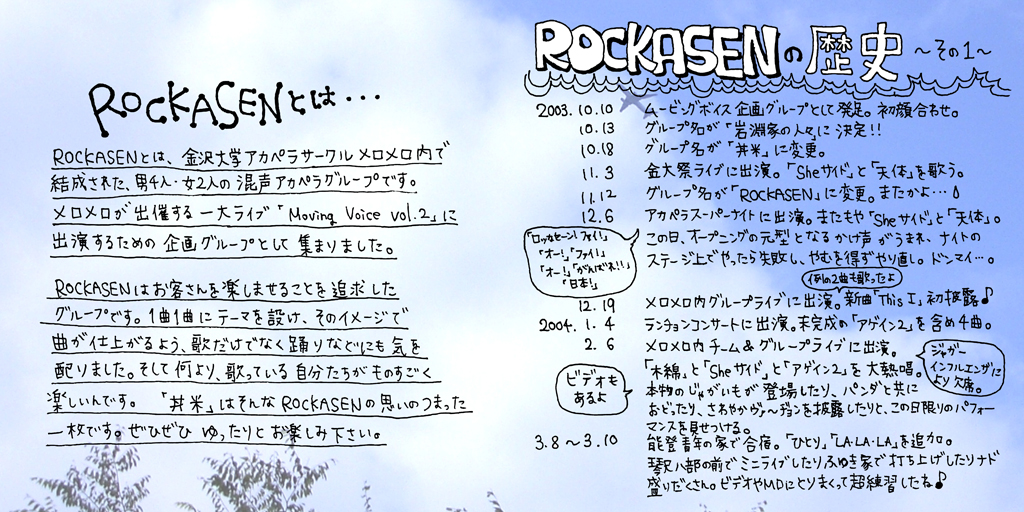 ROCKASENとは・・・
ROCKASENとは、金沢大学アカペラサークルメロメロ内で
結成された、男4人・女2人の混声アカペラグループです。
メロメロが出催する一大ライブ「Moving Voice vol.2」に
出演するための企画グループとして集まりました。
ROCKASENはお客さんを楽しませることを追求した
グループです。1曲1曲にテーマを設け、そのイメージで
曲が仕上がるよう、歌だけでなく踊りなどにも気を
配りました。そして何より、歌っている自分たちがものすごく
楽しいんです。「丼米」はそんなROCKASENの思いのつまった
一枚です。ぜひぜひゆったりとお楽しみ下さい。
ROCKASENの歴史 〜その1〜
2003.10.10 ムービングボイス企画グループとして発足。初顔合わせ。
10.13 グループ名が「岩淵家の人々」に決定!!
10.18 グループ名が「丼米」に変更。
11.3 金大祭ライブに出演。「Sheサイド」と「天体」を歌う。
11.12 グループ名が「ROCKASEN」に変更。またかよ…
12.6 アカペラスーパーナイトに出演。またもや「Sheサイド」と「天体」。
この日、オープニングの元型となるかけ声がうまれ、ナイトの
ステージ上でやったら失敗し、やむを得ずやり直し。ドンマイ…。
「ロッカセーン!ファイ!」
「オー!」「ファイ!」
「オー!」「がんばれ!!」
「日本!」
例の2曲も歌ったよ
12.19 メロメロ内グループライブに出演。新曲「This I」初披露♪
2004.1.4 ランチョンコンサートに出演。未完成の「アゲイン2」を含め4曲。
2.6 メロメロ内チーム&グループライブに出演。
「木綿」と「Sheサイド」と「アゲイン2」を大熱唱。
本物のじゃがいもが登場したり、パンダと共に
おどったり、さわやかヴァージョンを披露したりと、この日限りのパフォー
マンスを見せつける。
ジャガー
インフルエンザに
より欠席。
ビデオも
あるよ
3.8〜3.10 能登青年の家で合宿。「ひとり」、「LA・LA・LA」を追加。
琴沢八部の前でミニライブしたりふゆき家で打ち上げしたりナド
盛りだくさん。ビデオやMDにとりまくって超練習したね♪